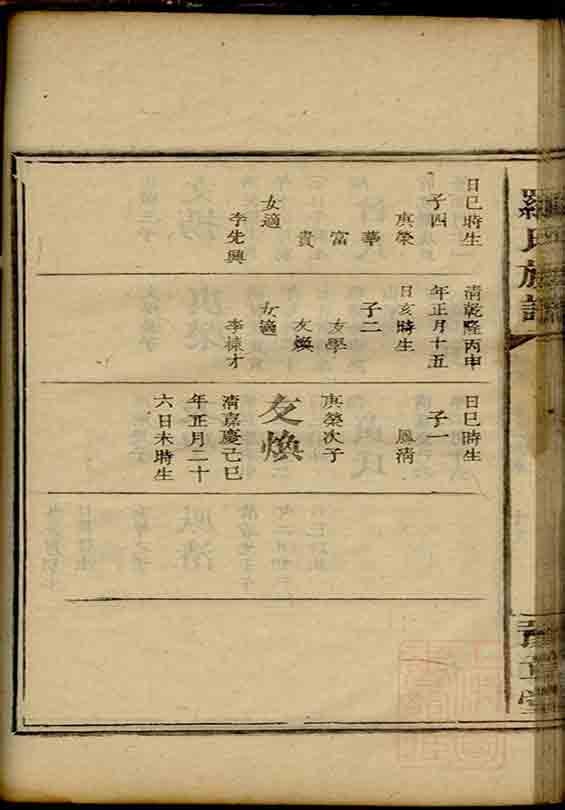 羅氏族譜
豫章堂
日巳時生
子四
庚榮
華
富
貴
女適
李先興
清乾隆丙申
年正月十五
日亥時生
子二
友學
友煥
女適
李棟才
日巳時生
子一
鳳清
庚榮次子
友煥
清嘉慶己巳
年正月二十
六日未時生